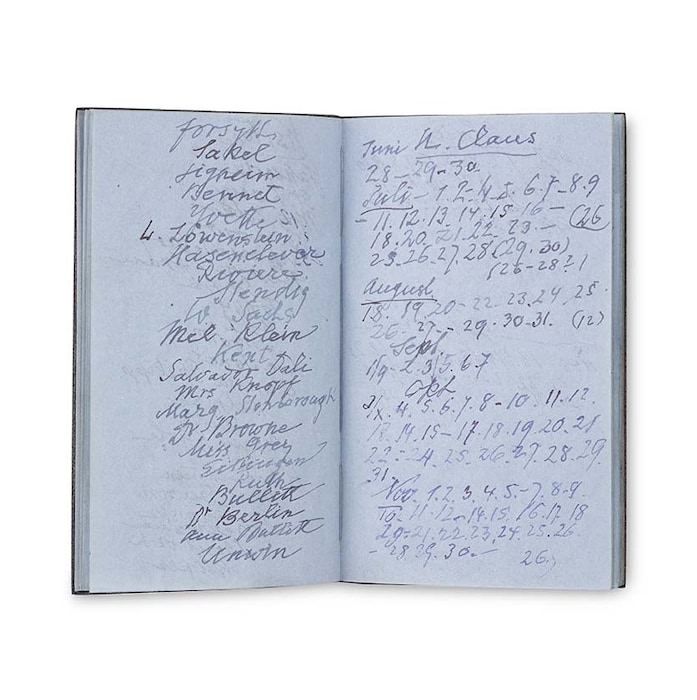 Forsyth
Sakel
Jigheim
Bennet
Yvette
L. Löwenstein
Hasenclever
Riviere
Hendig
W. Sachs
Mel. Klein
Kent
Salvador Dali
Mrs Knopf
Marg
Dr Browne
Miss Grey
Ruth
Bullitt
Dr Berlin
Bullitt
Unwin
Juni Claus
28 – 29 – 30
Juli – 1. 2 – 4. 5. 6. 7 – 8. 9
– 11. 12. 13. 14. 15. 16 – (26
18. 20. 21. 22 – 23 –
25. 26. 27. 28 (29. 30)
(26 – 28?)
August
18. 19. 20 – 22. 23. 24. 25.
26. 27 – 29. 30 – 31. (12)
Sept.
2. 3/5. 6. 7
Okt
4. 5. 6. 7. 8 – 10. 11. 12.
13. 14. 15 – 17. 18. 19. 20. 21
22 – 24. 25. 26. 27. 28. 29.
31.
Nov. 1. 2. 3. 4. 5. – 7. 8. 9.
10. 11. 12 – 14. 15. 16. 17. 18
21. 22. 23. 24. 25. 26
– 28 29. 30. –
26.)